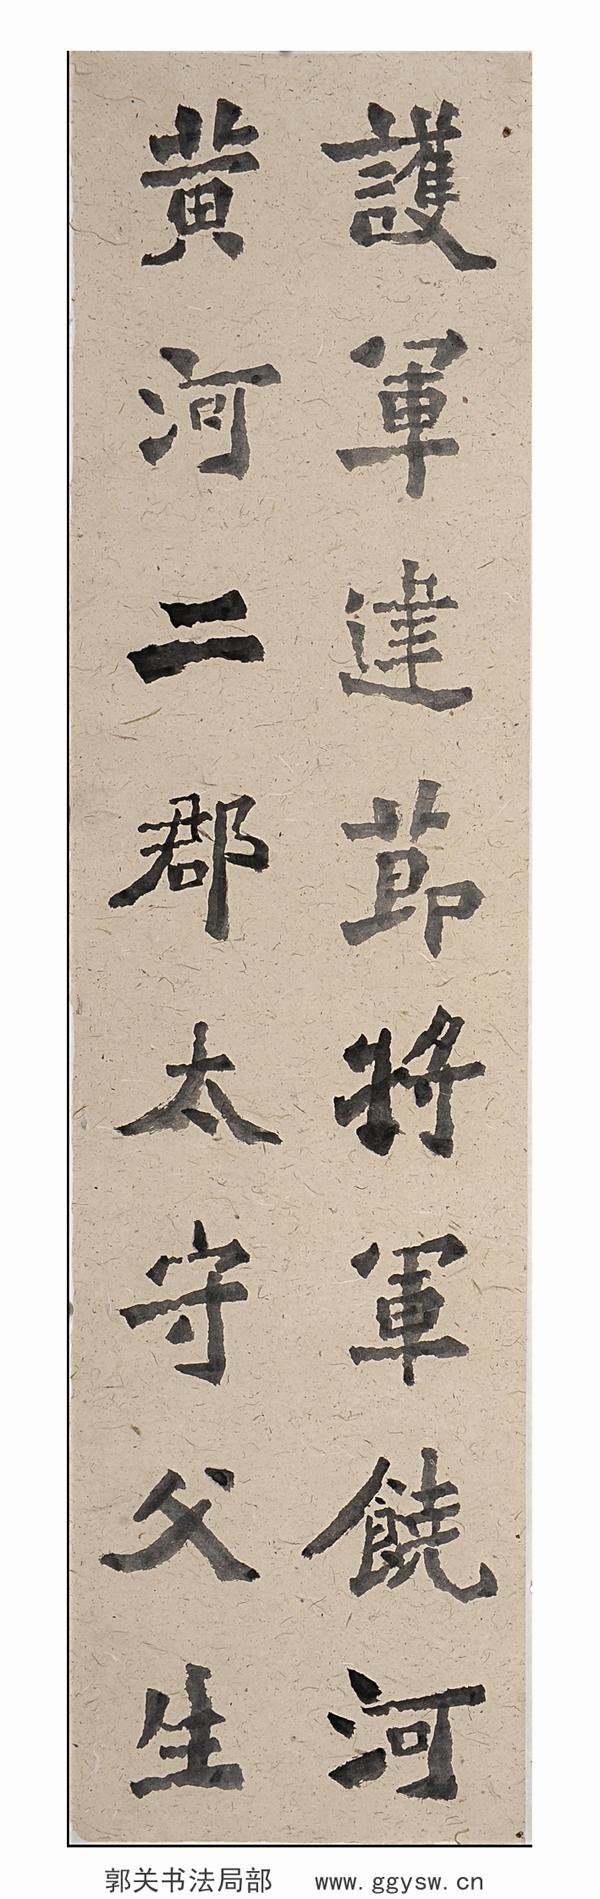 護軍建節將軍饒河
黄河二郡太守父生
郭关书法局部 www.ggysw.cn